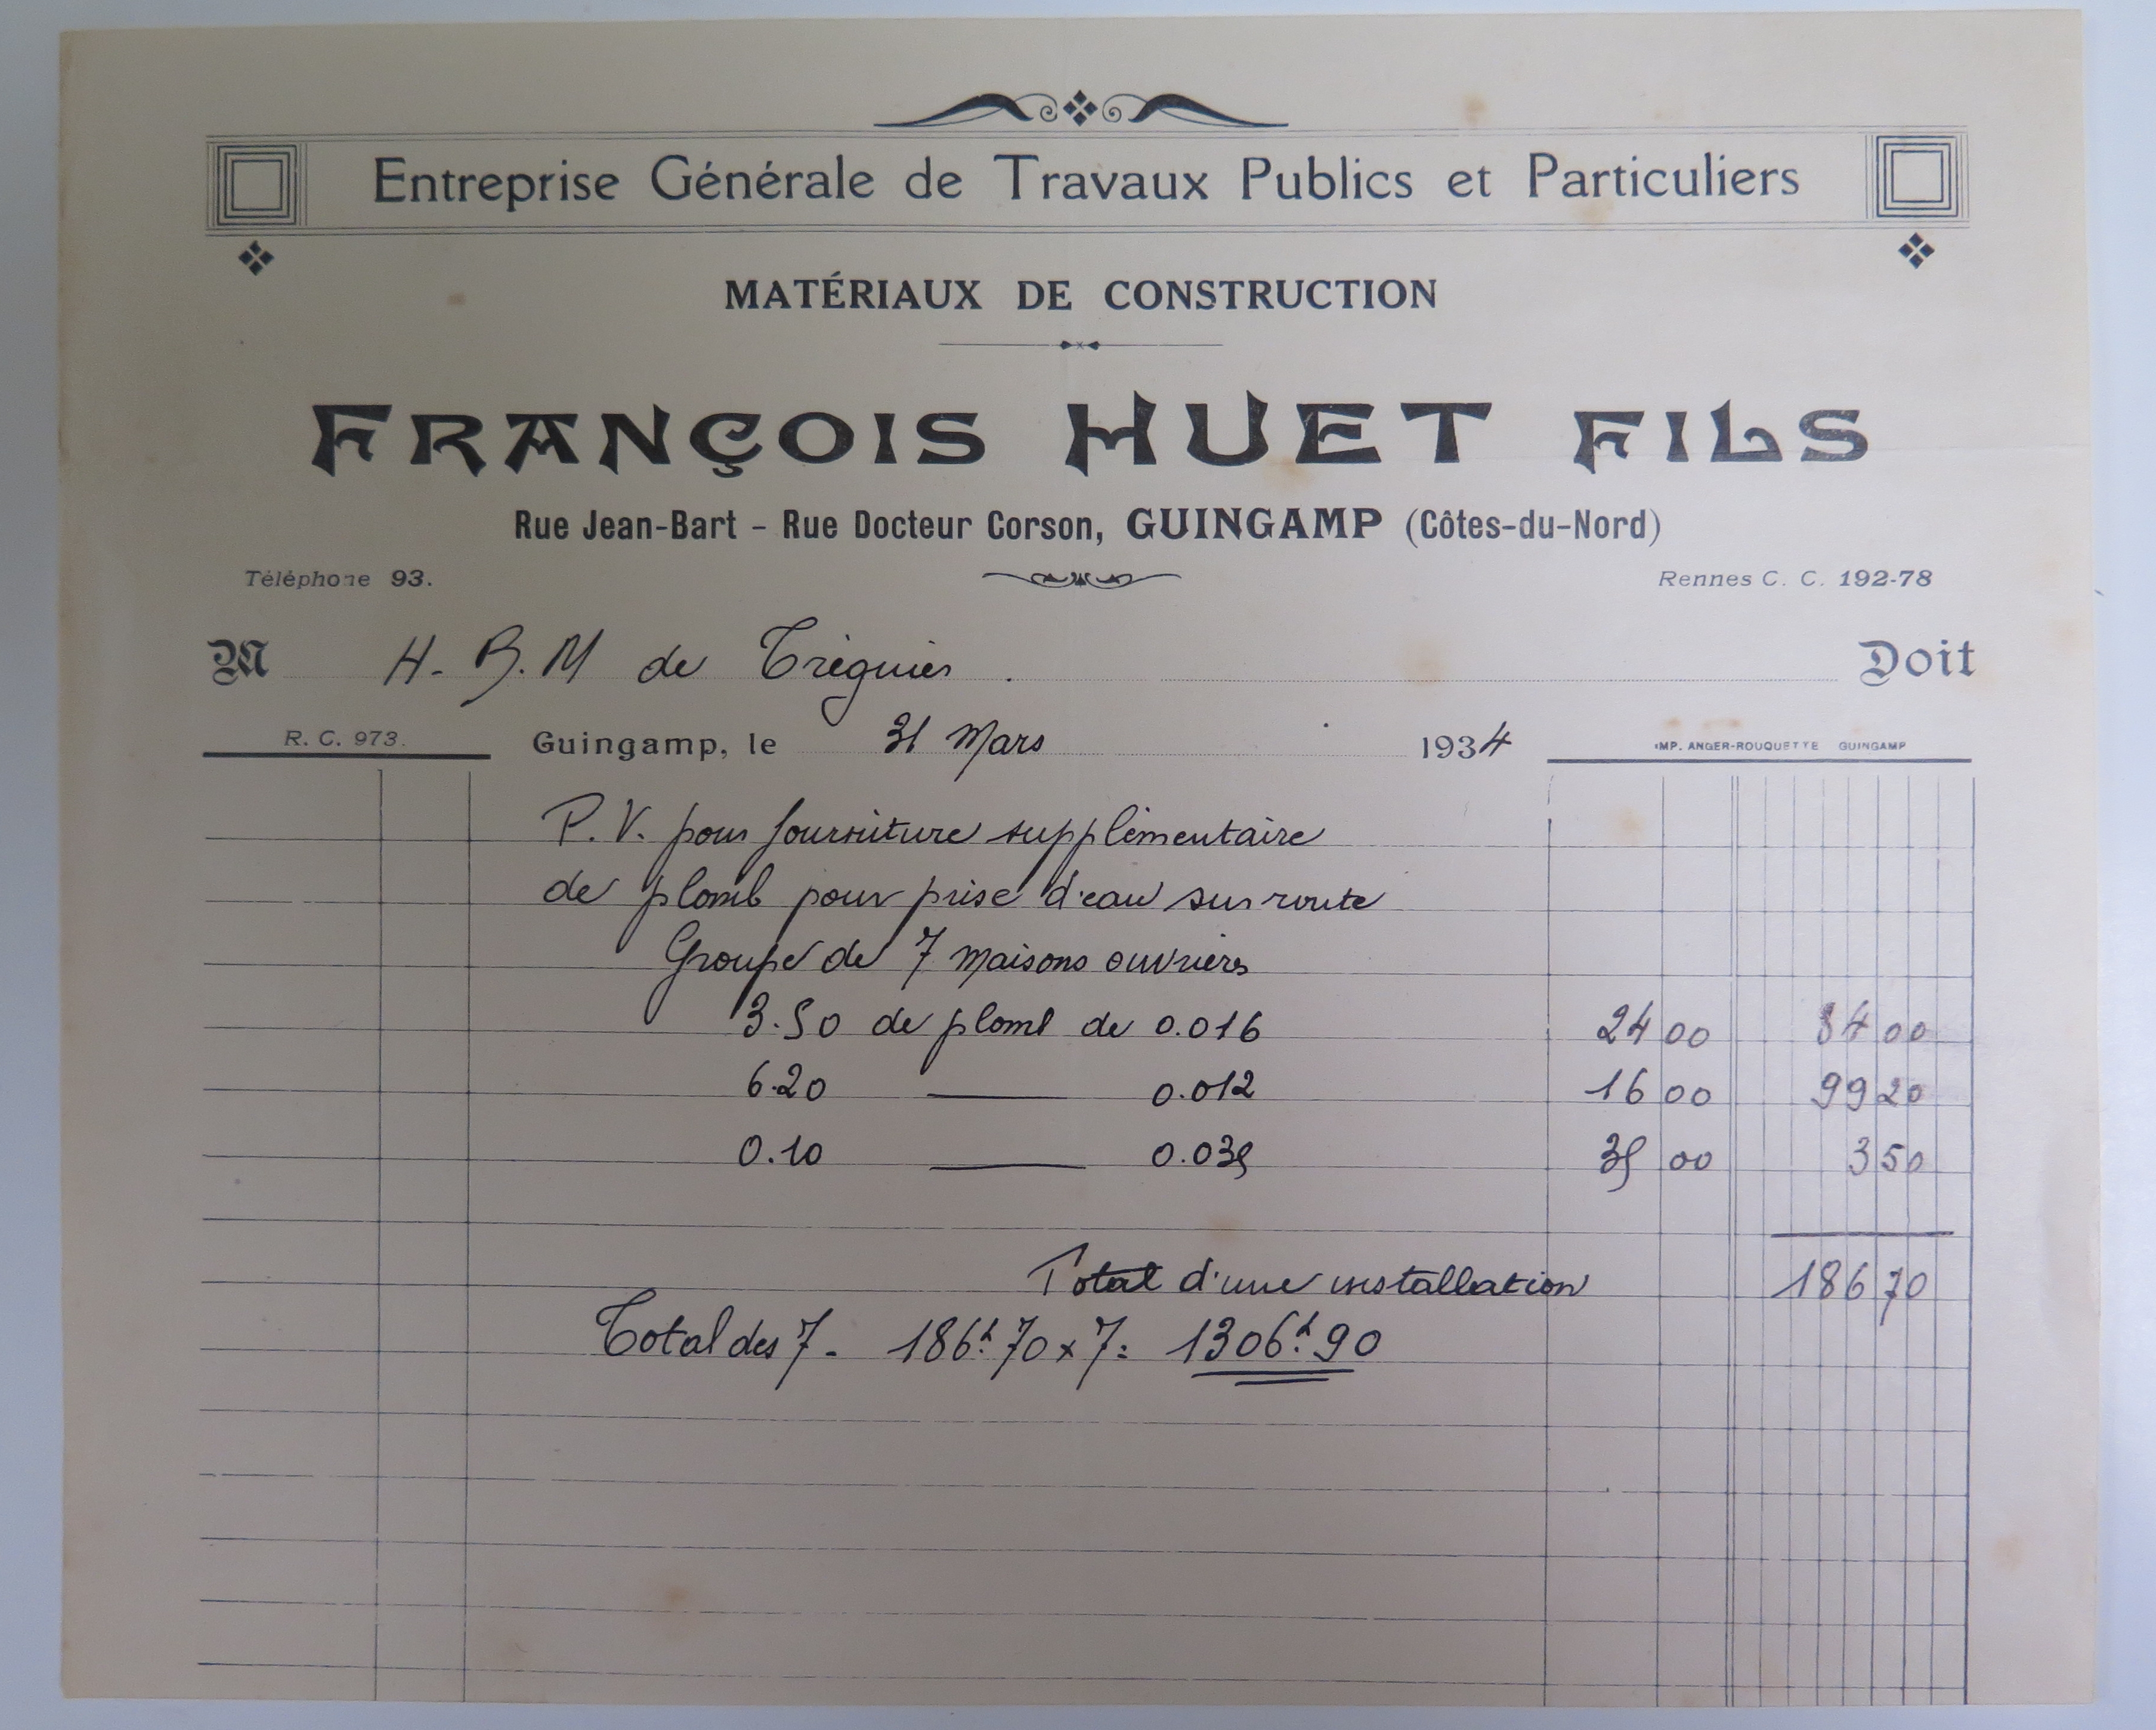 Entreprise Générale de Travaux Publics et Particuliers
MATÉRIAUX DE CONSTRUCTION
FRANÇOIS HUET FILS
Rue Jean-Bart - Rue Docteur Corson, GUINGAMP (Côtes-du-Nord)
Téléphone 93. Rennes C. C. 192-78
M H. B. M de Tréguier. Doit
R. C. 973. Guingamp, le 31 Mars 1934 IMP. ANGER-ROUQUETTE GUINGAMP
P. V. pour fourniture supplémentaire
de plomb pour prise d'eau sur route
Groupe de 7 maisons ouvrières
3.50 de plomb de 0.016 24 00 84 00
6.20 — 0.012 16 00 99 20
0.10 — 0.035 35 00 3 50
Total d'une installation 186 70
Total des 7 - 186f.70 x 7 = 1306f.90